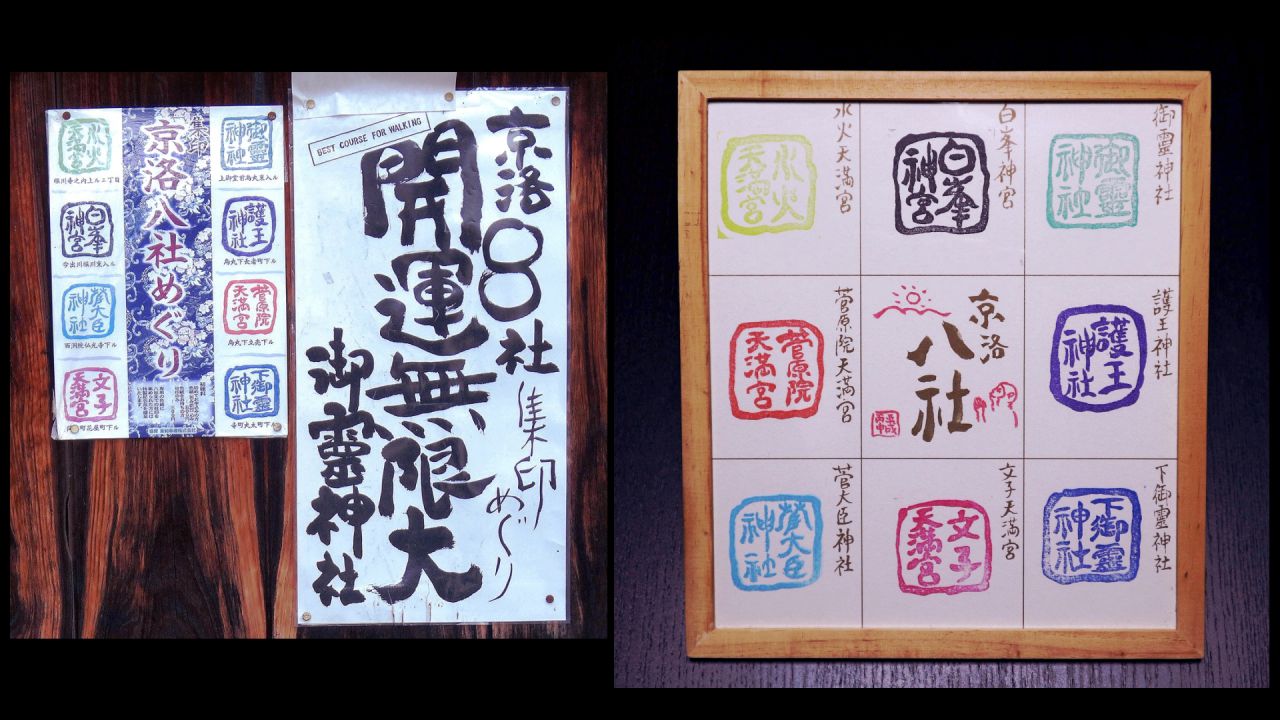 集印
京洛八社めぐり
御靈神社
上御霊前烏丸東入ル
護王神社
烏丸下長者町下ル
菅原院天満宮
烏丸下立売下ル
下御靈神社
寺町丸太町下ル
水火天満宮
堀川寺之内上ル二丁目
白峯神宮
今出川堀川東入ル
菅大臣神社
西洞院仏光寺下ル
文子天満宮
町花屋町下ル
京洛8社集印めぐり
BEST COURSE FOR WALKING
開運無限大
御靈神社
御靈神社
御靈神社
白峯神宮
白峯神宮
水火天満宮
水火天満宮
護王神社
護王神社
京洛
八社
菅原院天満宮
菅原院天満宮
下御靈神社
下御靈神社
文子天満宮
文子天満宮
菅大臣神社
菅大臣神社